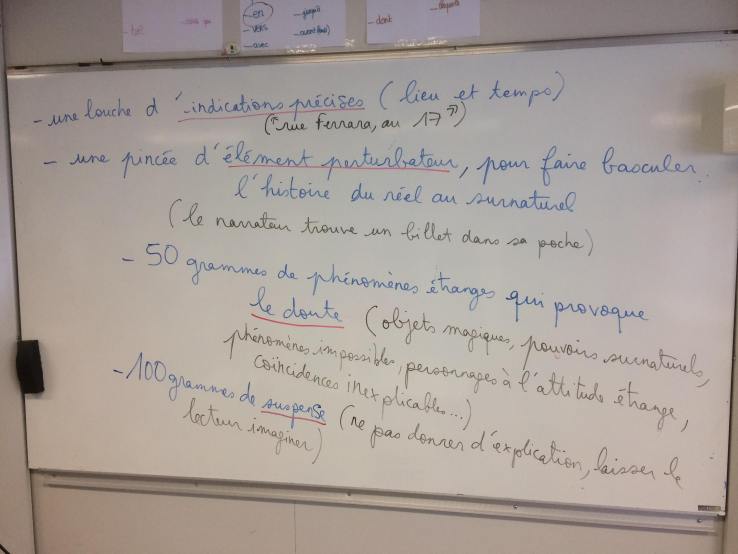 - en
- vers
- avec
- dont
- une louche d'indications précises (lieu et temps)
("rue Ferrara, au 17")
- une pincée d'élément perturbateur, pour faire basculer
l'histoire du réel au surnaturel
(le narrateur trouve un billet dans sa poche)
- 50 grammes de phénomènes étranges qui provoque
le doute (objets magiques, pouvoirs surnaturels,
phénomènes impossibles, personnages à l'attitude étrange,
coïncidences inexplicables...)
- 100 grammes de suspense (ne pas donner d'explication, laisser le
lecteur imaginer)